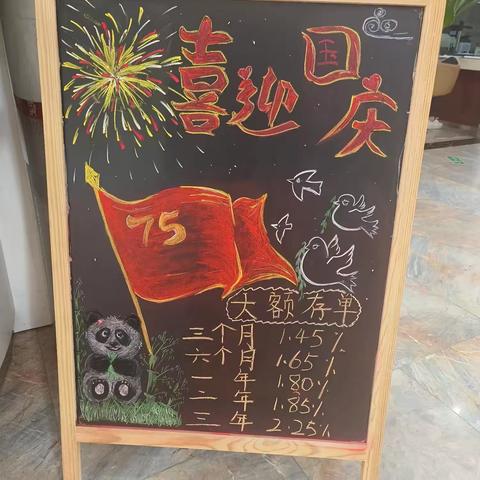 喜迎国庆
75
大额存单
三个月 1.45%
六个月 1.65%
一年 1.80%
二年 1.85%
三年 2.25%